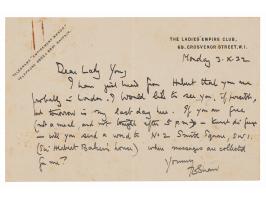 THE LADIES' EMPIRE CLUB,
69, GROSVENOR STREET, W.1.
Monday 3.X.32
Dear Lady Young
I have just heard from Hubert that you are
probably in London. I would like to see you, if possible,
but tomorrow is my last day here. If you are free
(not a meal and not after 5 p.m.)
- will you send a word to No 2 Smith Square, S.W.1
(Sir Herbert Baker's house) where messages are collected
for me?
Yours
T E Shaw